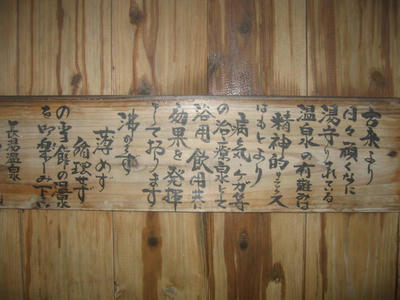 古来より
日々頑くなに
湯守りされてる
温泉の有難みは
精神的
はもとより
病気・ケガ等
の治療泉として
浴用、飲用共に
効果を発揮
して おります
沸かさず
薄めず
循環せず
の当館の温泉
を御楽しみ下さい
長湯温泉